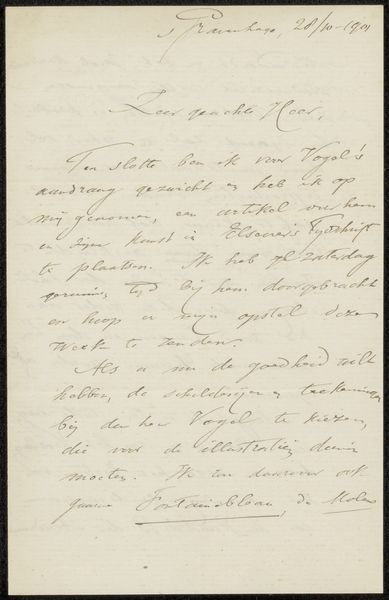 's Gravenhage, 28/10-1901
Zeer geachte Heer,
Ten slotte ben ik voor Vogel's
aandrang gezwicht en heb ik op
mij genomen, een artikel over hem
en zijn kunst in Elsevier's Tijdschrift
te plaatsen. Ik heb Zaterdag
geruimen tijd bij hem doorgebracht
en hoop u mijn opstel deze
week te zenden.
Als u nu de goedheid wilt
hebben, de schilderijen en teekeningen
bij den heer Vogel te kiezen,
die voor de illustratie dienen
moeten. Ik zou daarvoor ook
gaarne Fontainebleau, de Molen